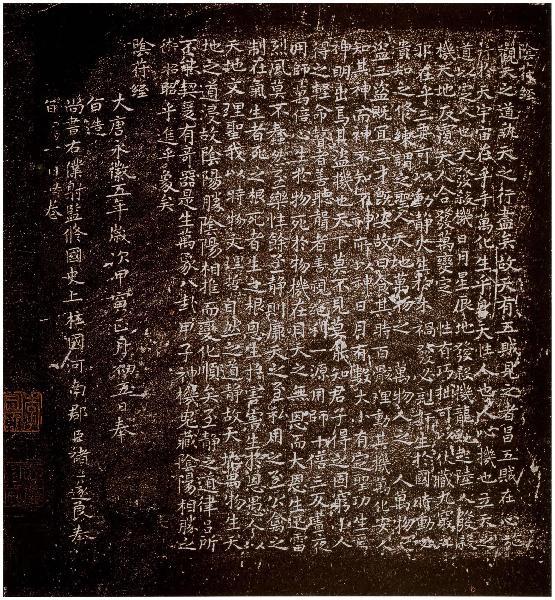 陰符經
觀天之道執天之行盡矣故天有五賊見之者昌五賊在心施
行於天宇宙在乎手萬化生乎身天性人也人心機也立天之
道以定人也天發殺機日月星辰地發殺機龍蛇起陸人發殺
機天地反覆天人合發萬變定基性有巧拙可以伏藏九竅之
邪在乎三要可以動靜火生於木禍發必剋姦生於國時動必
潰知之修練謂之聖人天地萬物之盜萬物人之盜人萬物之
盜三盜既宜三才既安故曰食其時百骸理動其機萬化安人
知其神而神不知不神所以神日月有數大小有定聖功生焉
神明出焉其盜機也天下莫不見莫能知君子得之固窮小人
得之輕命瞽者善聽聾者善視絕利一源用師十倍三反晝夜
用師萬倍心生於物死於物機在目天之無恩而大恩生迅雷
烈風莫不蠢然至樂性餘至靜則廉天之至私用之至公禽之
制在氣生者死之根死者生之根恩生於害害生於恩愚人以
天地文理聖我以時物文理哲自然之道靜故天地萬物生天
地之道浸故陰陽勝陰陽相推而變化順矣至靜之道律呂所
不能契爰有奇器是生萬象八卦甲子神機鬼藏陰陽相勝之
術昭昭乎進乎象矣
陰符經
大唐永徽五年歲次甲寅正月初五日奉
旨造
尚書右僕射監修國史上柱國河南郡臣褚遂良奉
旨